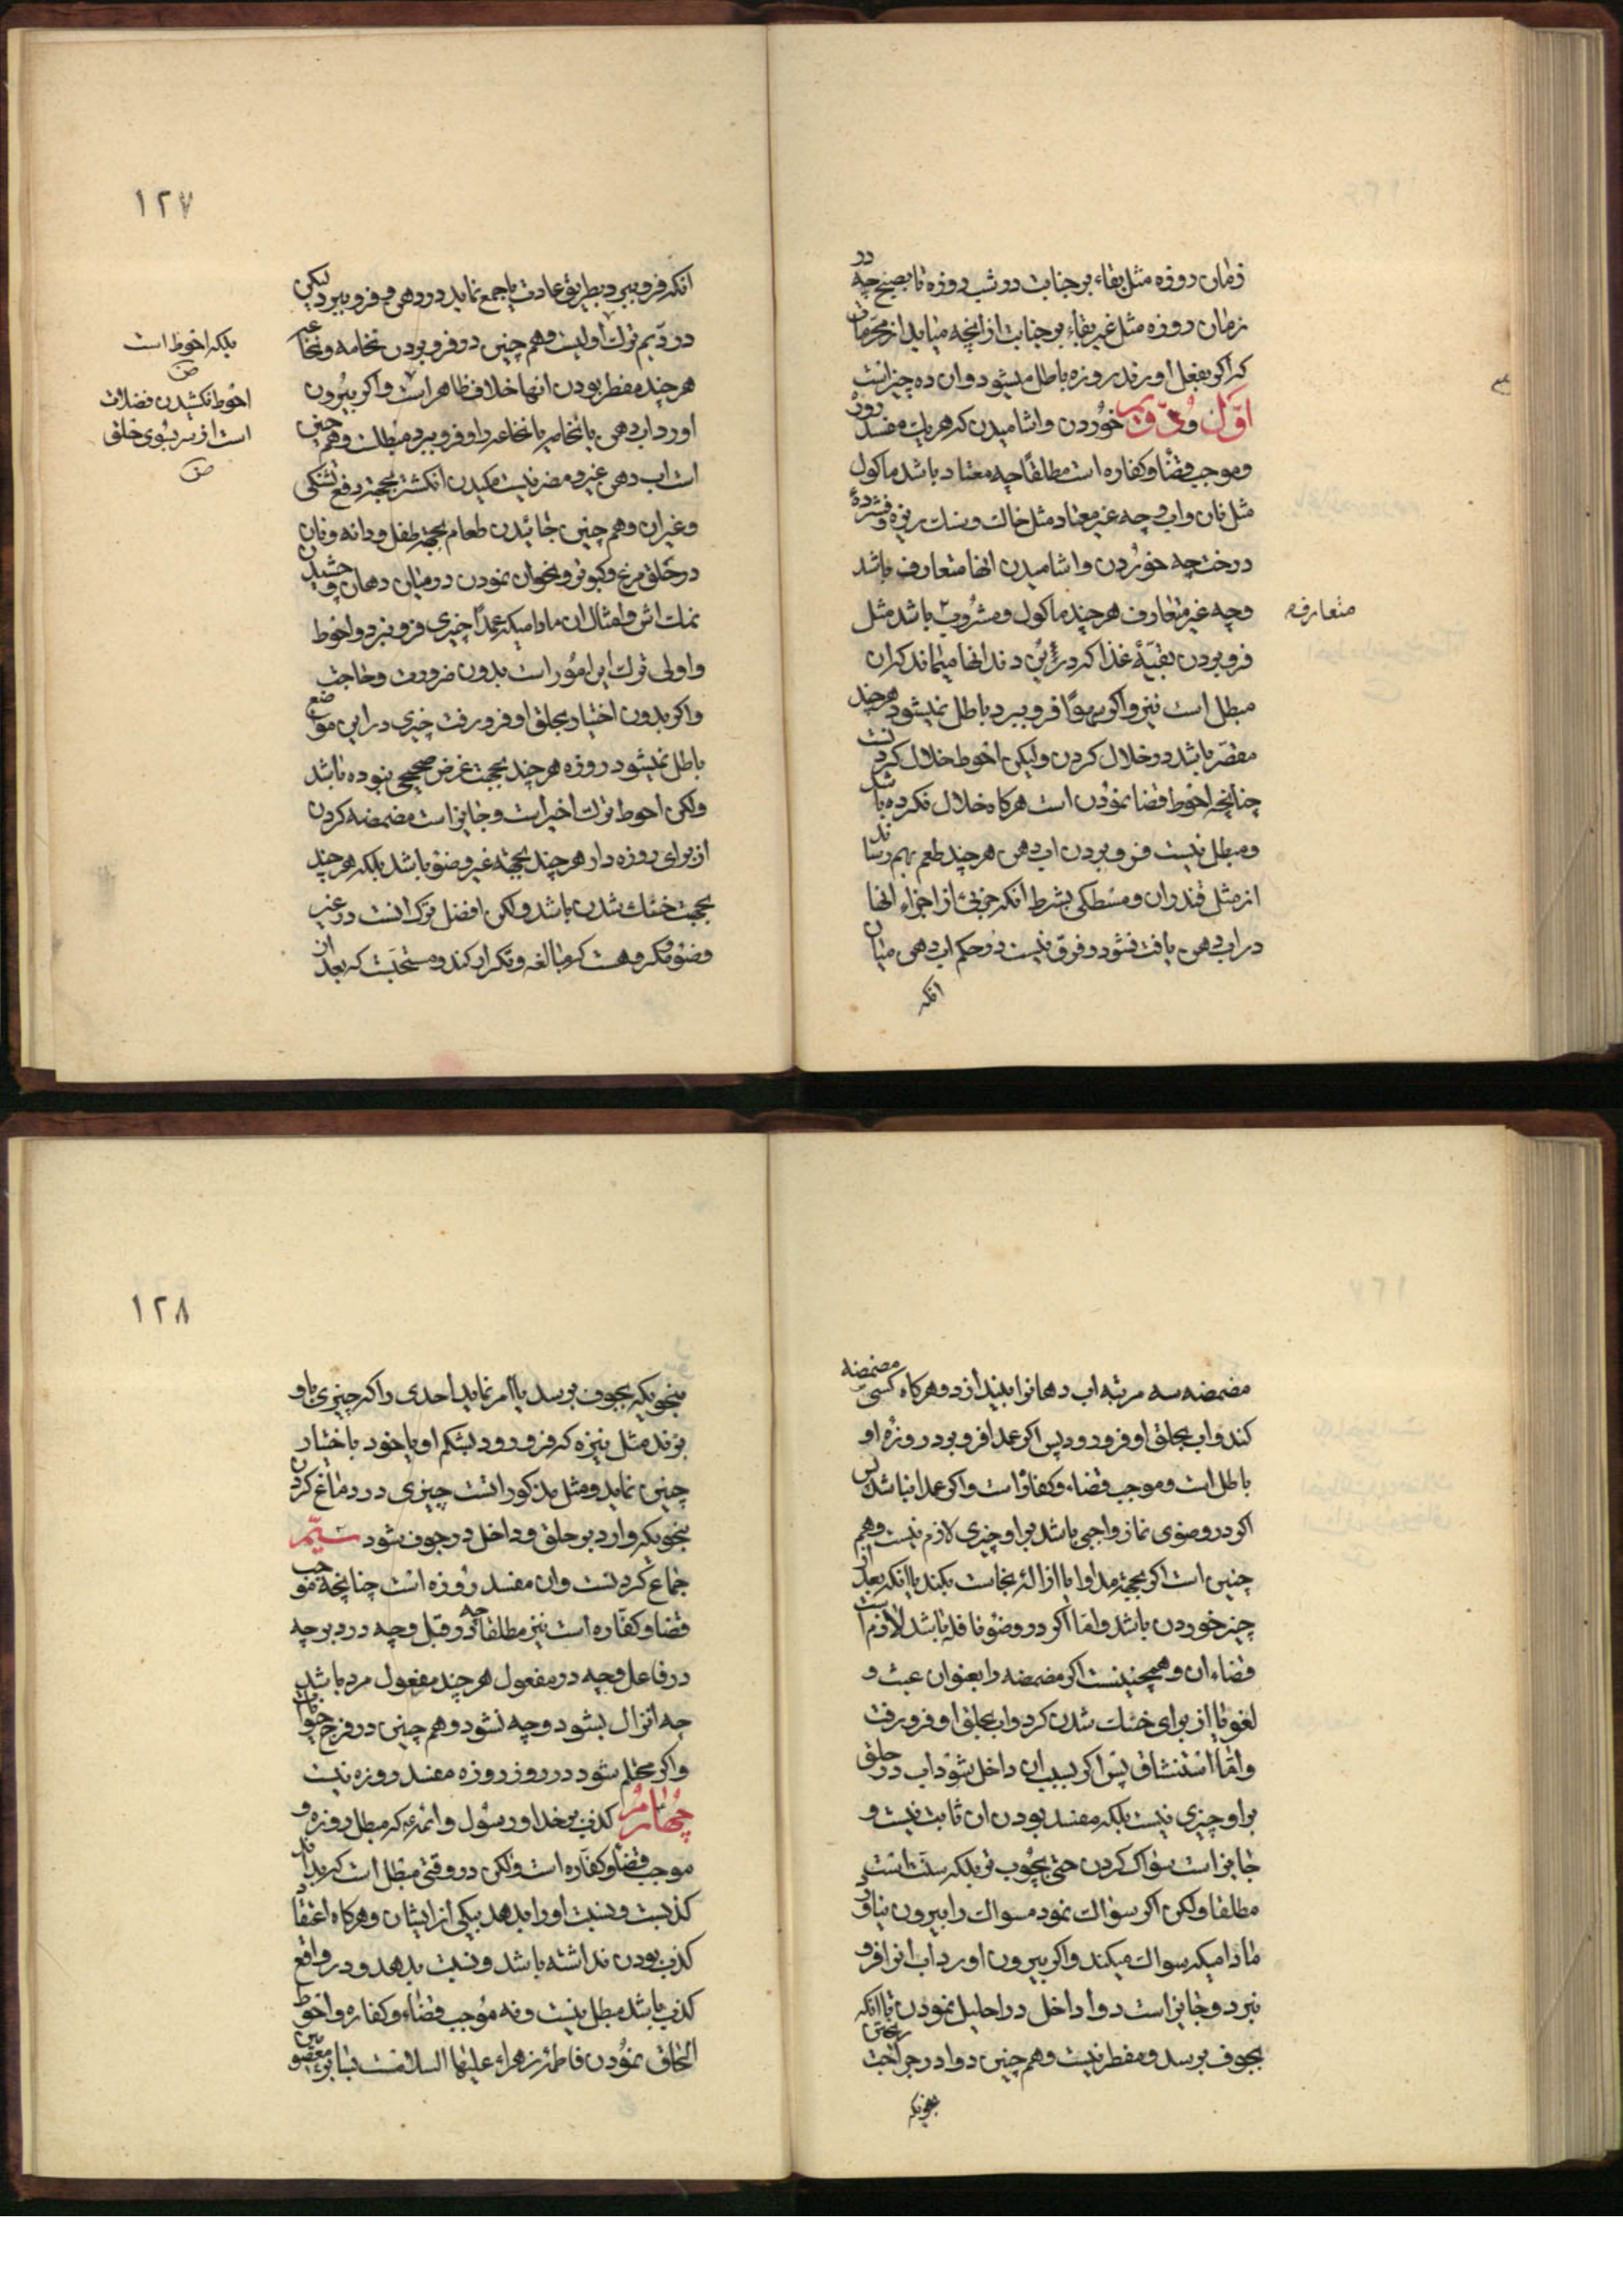 زمان روزه مثل بقاء بر جنابت در شب روزه تا بصبح چه در
زمان روزه مثل غیر بقاء بر جنابت از انچه میاید از محرّمات
که اگر بفعل اورند روزه باطل میشود و ان ده چیز است
اوّل و دویم خوُردن و اشامیدن که هر یك مفسد روزه
و موجب قضا و کفاره است مطلقًا چه معتاد باشد ماکول
مثل نان و اب و چه غیر معتاد مثل خاك و سنك ریزه و فشردۀ
درخت چه خوُردن و اشامیدن انها متعارف باشد
و چه غیر متعارف هر چند ماکول و مشروب باشد مثل
متعارفه
فرو بردن بقیّۀ غذا که در بُن دندانها میماند که ان
مبطل است نیز و اکر سهوًا فرو ببرد باطل نمیشود هر چند
مقصّر باشد در خلال کردن ولیکن احوط خلال کردنست
چنانچه احوط قضا نموُدن است هر کاه خلال نکرده باشد
و مبطل نیست فرو بردن اب دهن هر چند طعم بهم رساند
از مثل قند و ان و مسْطکی بشرط انکه جزئی از اجزاء انها
در اب دهن یافت نشود و فرق نیست در حکم اب دهن میان
انکه
۱۲۷
انکه فرو ببرد بطریق عادت یا جمع نماید در دهن و فرو ببرد لیکن
در دیّم ترك اولیست و هم چنین در فرو بردن نخامه و نخاعه
هر چند مفطر بودن انها خلاف ظاهر است و اکر بیروُن
اورد اب دهن یا نخامه یا نخاعه را و فرو ببرد مبطلست و هم چنین
است اب دهن غیر و مضر نیست مکیدن انکشتر بجهته رفع تشنکی
و غیر ان و هم چنین خائیدن طعام بجهته طفل و دانه و نان
در حلق مرغ و کبوتر و نخوان نمودن در میان دهان و چشیدن
نمك اش و امثال ان مادامیکه عمدًا چیزی فرو نبرد و احوط
و اولی ترك این امُور است بدون ضرورت و حاجت
و اکر بدون اختیار بحلق او فرو رفت چیزی در این موضع
باطل نمیشود روزه هر چند بجهت غرض صحیحی نبوده باشد
ولکن احوط ترك اخیر است و جایز است مضمضه کردن
از برای روزه دار هر چند بجهته غیر وضوُ باشد بلکه هر چند
بجهت خنك شدن باشد ولکن افضل ترك انست در غیر
وضوُ و مکروهست که مبالغه و تکرار کند و مستحبّست که بعد از
بلکه احوط است
ص
احوط نکشیدن فضلات
است از سر بسُوی حلق
ص
مضمضه سه مرتبه اب دهانرا بیندازد و هر کاه کسی مضمضه
کند و اب بحلق او فرو رود پس اکر عمدا فرو برد روزۀ او
باطل است و موجب قضاء و کفاره است و اکر عمدا نباشد پس
اکر در وضوی نماز واجبی باشد بر او چیزی لازم نیست و هم
چنین است اکر بجهته مداوا یا ازالۀ نجاست بکند یا انکه بعد از
چیز خوردن باشد و امّا اکر در وضوُ نافله باشد لازم است
قضاء ان و همچنینست اکر مضمضه را بعنوان عبث و
لغو یا از برای خنك شدن کرد و اب بحلق او فرو رفت
و امّا استنشاق پس اکر بسبب ان داخل شود اب در حلق
بر او چیزی نیست بلکه مفسد بودن ان ثابت نیست و
جایز است سواك کردن حتی بچُوب تر بلکه سنّت است
مطلقا ولکن اکر سواك نمود مسواك را بیرون نیاورد
مادامیکه سواك میکند و اکر بیرون اورد اب انرا فرو
نبرد و جایز است دوا داخل در احلیل نمودن تا انکه
بجوف برسد و مفطر نیست و هم چنین دوا در جراحت ریختن
بنحویکه
۱۲۸
بنحویکه بجوف برسد یا امر نماید احدی را که چیزی باو
بزند مثل نیزه که فرو رود بشکم او یا خود باختیار
چنین نماید و مثل مذکور است چیزی در دماغ کردن
بنحویکه وارد بر حلق و داخل در جوف شود سیّم
جماع کردنست و ان مفسد روُزه است چنانچه موجب
قضا و کفّاره است نیز مطلقا چه در قبل و چه در دبر چه
در فاعل و چه در مفعول هر چند مفعول مرد باشد
چه انزال بشود و چه نشود و هم چنین در فرج حیوان
و اکر محتلم شود در روز روزه مفسد روزه نیست
چهارم کذب بر خدا و رسُول و ائمه ع که مبطل روزه و
موجب قضا و کفّاره است ولکن در وقتی مبطل است که بداند
کذبست و نسبت او را بدهد بیکی از ایشان و هر کاه اعتقاد
کذب بودن نداشته باشد و نسبت بدهد و در واقع
کذب باشد مبطل نیست و نه موُجب قضاء و کفاره و احوط
الحاق نموُدن فاطمۀ زهراء علیها السلامست بسایر معصومین